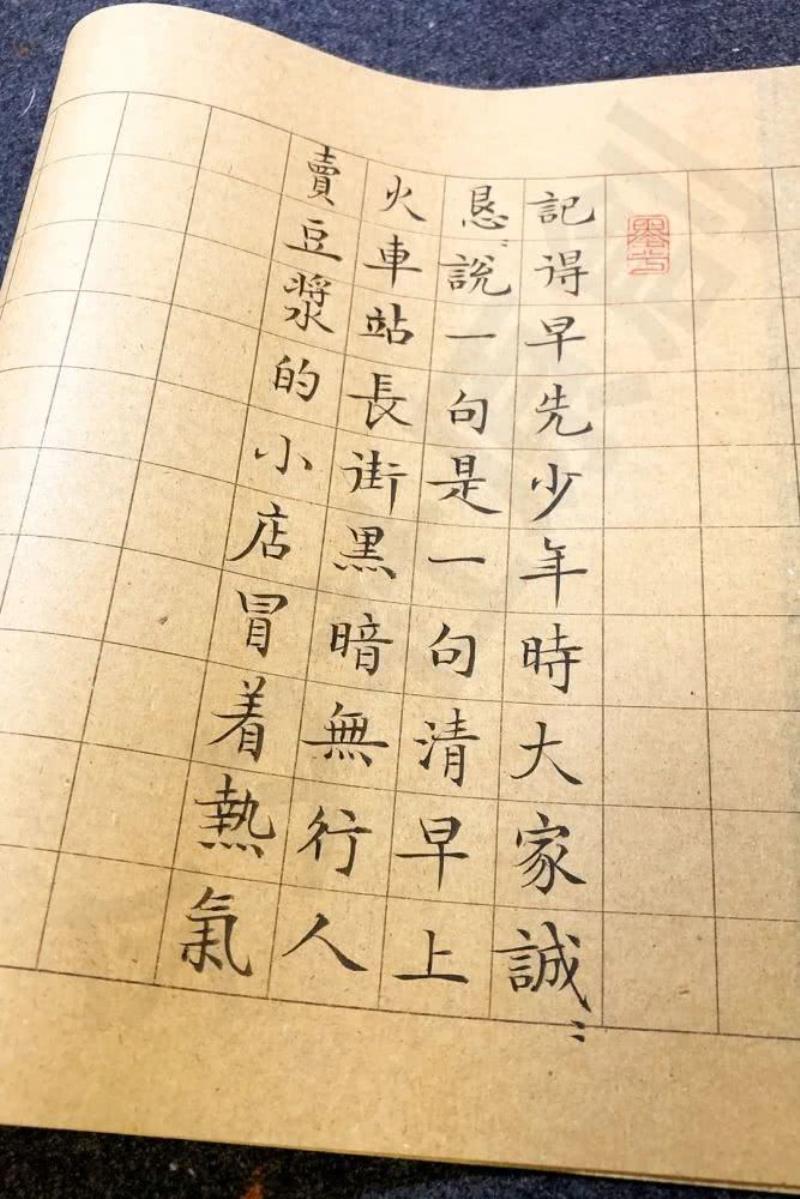 記得早先少年時大家誠〻
恳〻說一句是一句清早上
火車站長街黑暗無行人
賣豆漿的小店冒着熱氣